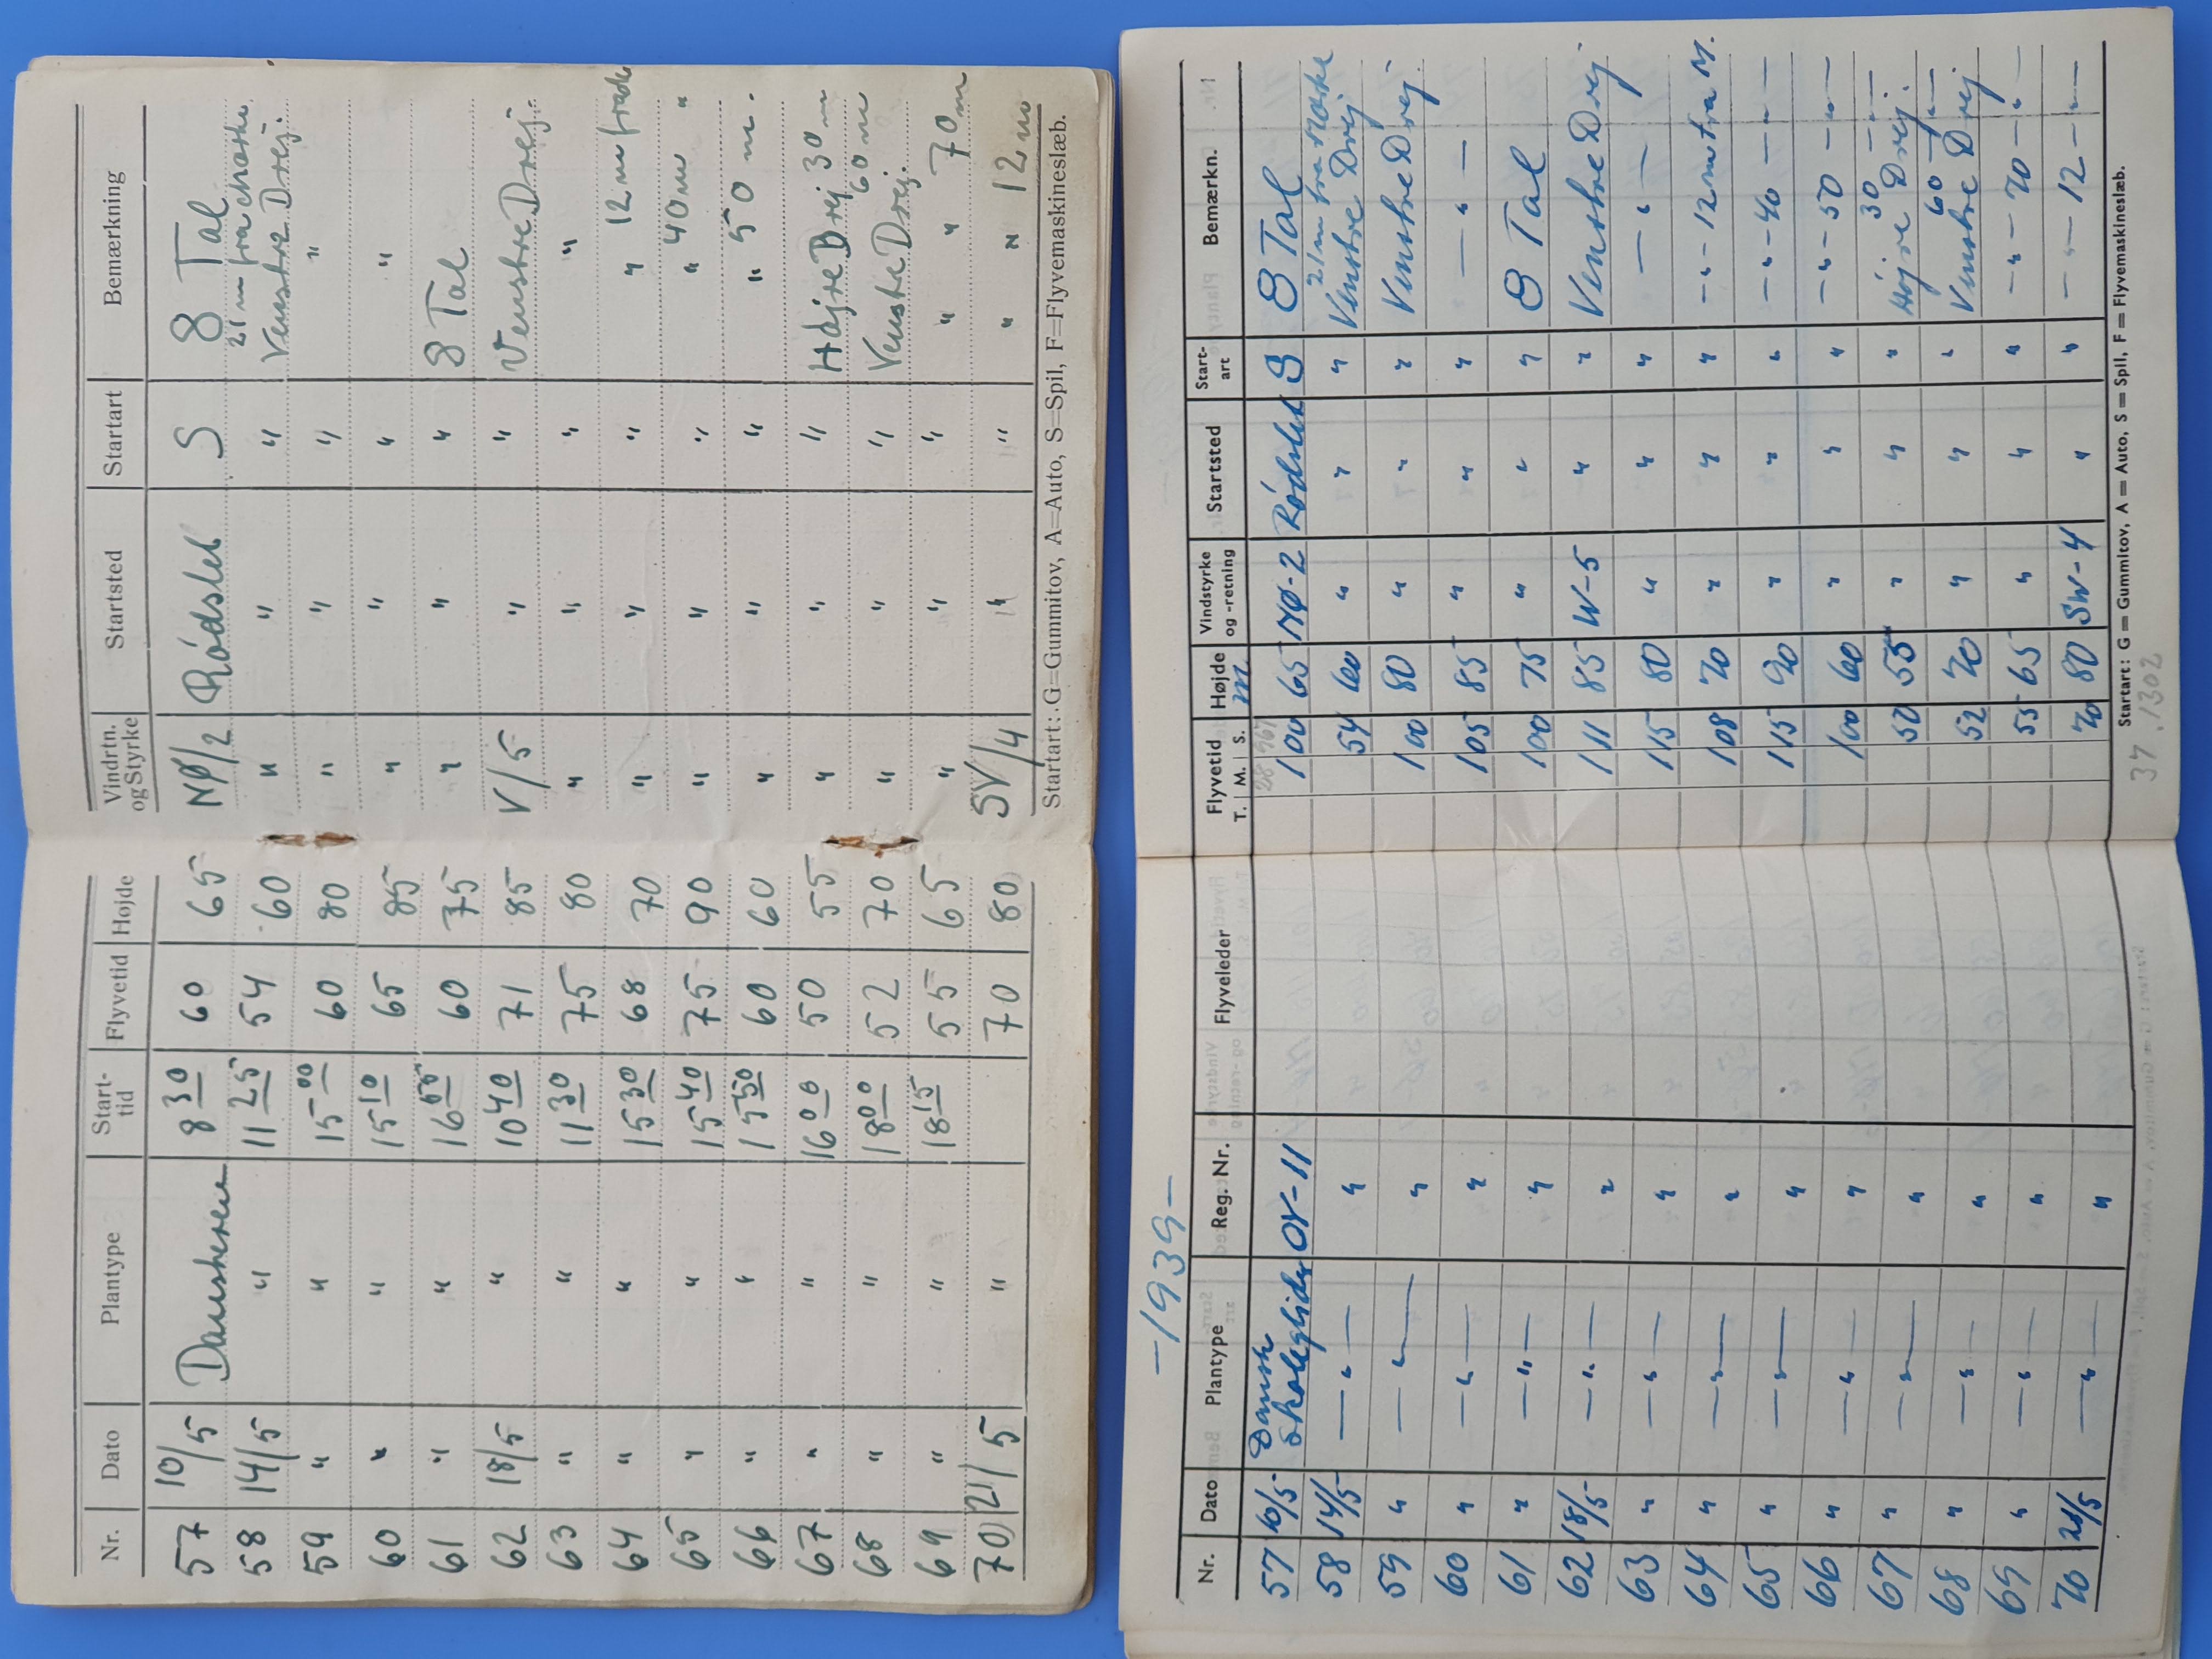 Nr. Dato Plantype Start-tid Flyvetid Højde Vindrtn. og Styrke Startsted Startart Bemærkning
57 10/5 8 30 60 65 NØ/2 Rödslet S 8 Tal
21 m fra
58 14/5 " 11 25 54 60 " " " Venstre Drej.
59 " " 15 00 60 80 " " " "
60 " " 15 10 65 85 " " " "
61 " " 16 60 75 " " " 8 Tal
62 18/5 " 10 40 71 85 V/5 " " Venstre Drej.
63 " " 11 30 75 80 " " " "
64 " " 15 30 68 70 " " " " 12 m
65 " " 15 40 75 90 " " " " 40 m "
66 " " 15 50 60 60 " " " " 50 m.
67 " " 16 00 50 55 " " " Højre Drej 30 m
60 m
68 " " 18 00 52 70 " " " Venstre Drej.
69 " " 18 15 55 65 " " " " " 70 m
70) 21/5 " 70 80 SV/4 " " " " 12 m
Startart: G=Gummitov, A=Auto, S=Spil, F=Flyvemaskineslæb.
-1939-
Nr. Dato Plantype Reg. Nr. Flyveleder Flyvetid T. M. S. Højde m Vindstyrke og -retning Startsted Start-art Bemærkn.
57 10/5 Dansk Skoleglider OY-11 1 00 65 NØ-2 Rödslet S 8 Tal
21 m fra
58 14/5 —"— " 54 60 " " " Venstre Drej
59 " —"— " 1 00 80 " " " Venstre Drej.
60 " —"— " 1 05 85 " " " —"—
61 " —"— " 1 00 75 " " " 8 Tal
62 18/5 —"— " 1 11 85 W-5 " " Venstre Drej
63 " —"— " 1 15 80 " " " —"—
64 " —"— " 1 08 70 " " " -"- 12 m fra M.
65 " —"— " 1 15 90 " " " -"- 40 -"-
66 " —"— " 1 00 60 " " " -"- 50 -"-
30 -"-
67 " —"— " 50 55 " " " Højre Drej.
60 -"-
68 " —"— " 52 70 " " " Venstre Drej
69 " —"— " 55 65 " " " -"- 70 -"-
70 21/5 —"— " 70 80 SW-4 " " -"- 12 -"-
Startart: G = Gummitov, A = Auto, S = Spil, F = Flyvemaskineslæb.
37.1302